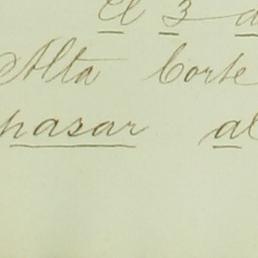 El 3 d
Alta Corte
pasar al